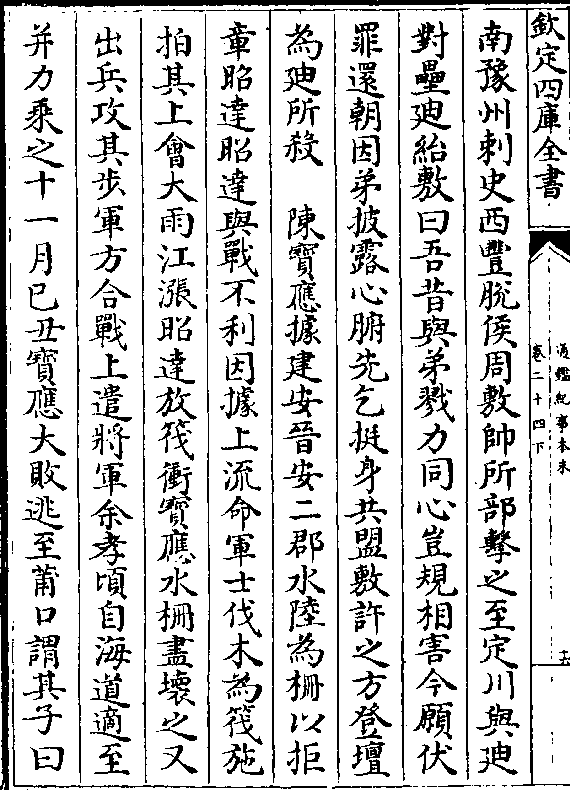 欽定四庫全書
通鑑紀事本末
卷二十四下
南豫州刺史西豐脫侯周敷帥所部擊之至定川與廸
對壘廸紿敷曰吾昔與弟戮力同心豈規相害今願伏
罪還朝因弟披露心腑先乞挺身共盟敷許之方登壇
為廸所殺　陳寶應據建安晉安二郡水陸為柵以拒
章昭達昭達與戰不利因據上流命軍士伐木為筏施
拍其上會大雨江漲昭達放筏衝寶應水柵盡壞之又
出兵攻其步軍方合戰上遣將軍余孝頃自海道適至
并力乘之十一月己丑寶應大敗逃至莆口謂其子曰